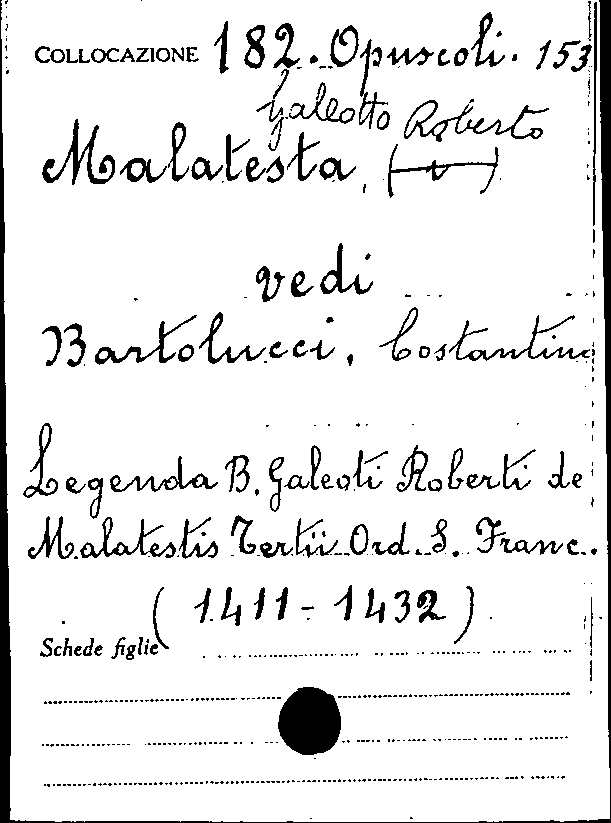 COLLOCAZIONE 182. Opuscoli. 153
Galeotto Roberto
Malatesta,
vedi
Bartolucci, Costantino
Legenda B. Galeoti Roberti de
Malatestis Tertii Ord. S. Franc.
(1411-1432)
Schede figlie